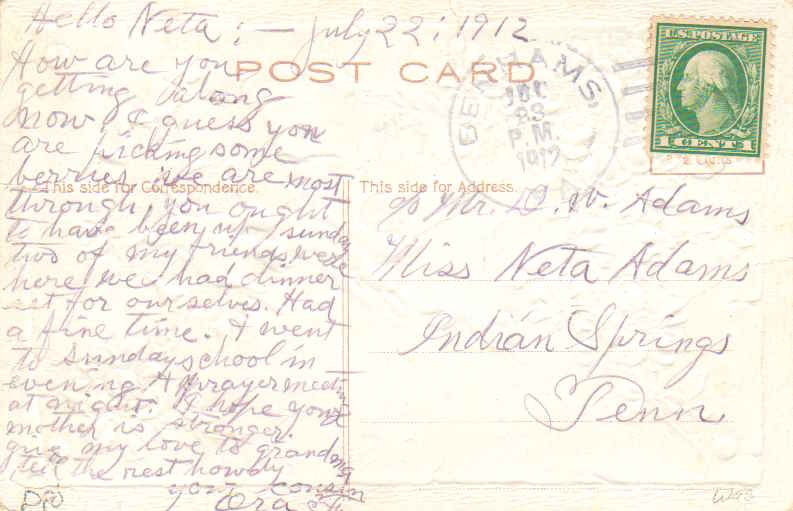 Hello Neta; — July 22; 1912
How are you
getting along
now I guess you
are picking some
berries we are most
through, you ought
to have been up Sunday
two of my friends were
here we had dinner
set for ourselves. Had
a fine time. I went
to Sunday school in
evening & prayer meeting
at night. I hope your
mother is stronger.
give my love to grandma
tell the rest howdy
your cousin
Ora
POST CARD
This side for Correspondence.
This side for Address.
ADAMS,
JUL
23
P.M.
1912
U.S. POSTAGE
1 CENT 1
c/o Mr. D. W. Adams
Miss Neta Adams
Indian Springs
Tenn
DPO